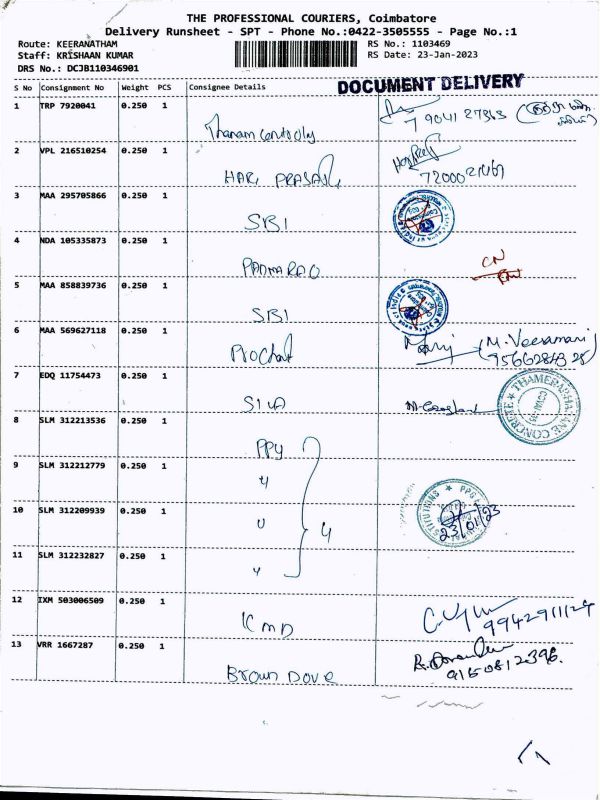 THE PROFESSIONAL COURIERS, Coimbatore
Delivery Runsheet - SPT - Phone No.:0422-3505555 - Page No.:1
Route: KEERANATHAM
RS No.: 1103469
Staff: KRISHAAN KUMAR
RS Date: 23-Jan-2023
DRS No.: DCJB110346901
DOCUMENT DELIVERY
S No Consignment No Weight PCS Consignee Details
1 TRP 7920041 0.250 1
2 VPL 216510254 0.250 1
HARI PRASAD
3 MAA 295705866 0.250 1
SBI
4 NDA 105335873 0.250 1
PADMARAO
CN
5 MAA 858839736 0.250 1
SBI
6 MAA 569627118 0.250 1
M. Veeramani
7 EDQ 11754473 0.250 1
THAMERAI CONCRETE
8 SLM 312213536 0.250 1
PPG
9 SLM 312212779 0.250 1
10 SLM 312209939 0.250 1
4
23/01/23
11 SLM 312232827 0.250 1
12 IXM 503006509 0.250 1
KMD
9942911124
13 VRR 1667287 0.250 1
Brown Dove
9150812396.